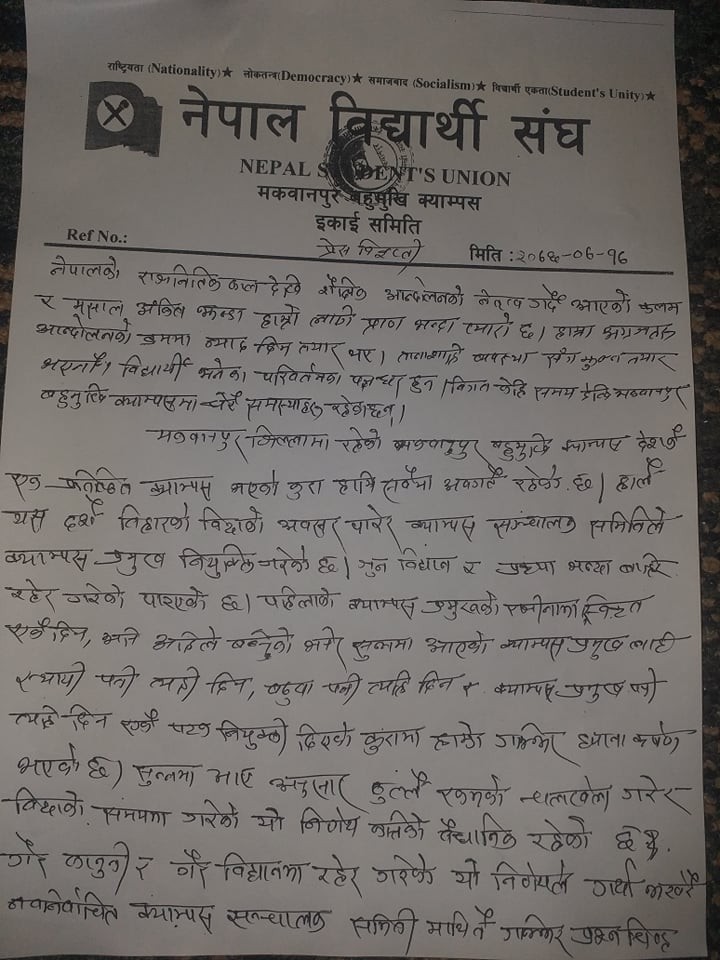 राष्ट्रियता (Nationality)★ लोकतन्त्र(Democracy)★ समाजबाद (Socialism)★ विद्यार्थी एकता(Student's Unity)★
नेपाल विद्यार्थी संघ
NEPAL STUDENT'S UNION
मकवानपुर बहुमुखि क्याम्पस
इकाई समिति
Ref No.: मिति :२०७६-०७-१६
प्रेस विज्ञप्ती
नेपालको राजनितिक काल देखि शैक्षिक आन्दोलनको नेतृत्व गर्दै आएको कलम
र मसाल अंकित झण्डा हाम्रो लागी प्राण भन्दा प्यारो छ। हाम्रा अग्रजहरु
आन्दोलनको क्रममा ज्यान दिन तयार भए। तानाशाही व्यवस्था सँग झुक्न तयार
भएनौं। विद्यार्थी भनेका परिवर्तनका पक्षधर हुन। विगत केहि समय देखि मकवानपुर
बहुमुखि क्याम्पसमा धेरै समस्याहरु रहेका छन्।
मकवानपुर जिल्लामा रहेको मकवानपुर बहुमुखि क्याम्पस देशकै
एक प्रतिष्ठित क्याम्पस भएको कुरा हामि सबैमा अवगतै रहेको छ। हालै
यस दशैं तिहारको विदाको अवसर पारेर क्याम्पस सञ्चालक समितिले
क्याम्पस प्रमुख नियुक्ति गरेको छ। जुन विधान र प्रक्रिया भन्दा बाहिर
रहेर गरेको पाइएको छ। पहिलाका क्याम्पस प्रमुखको राजीनामा स्विकृत
एकैदिन, अनि अहिले बन्नुभको भनेर सुन्नमा आएको क्याम्पस प्रमुख लाई
स्थायी पनी त्यही दिन, बढुवा पनी त्यहि दिन र क्याम्पस प्रमुख पनी
त्यहि दिन एकै पटक नियुक्ती दिएको कुरामा हाम्रो गम्भिर ध्यानाकर्षण
भएको छ। सुन्नमा आए अनुसार ठुलै रकमको चलखेल गरेर
विदाको समयमा गरेको यो निर्णय कत्तिको वैधानिक रहेको छ?
गैर कानुनी र गैर विधानमा रहेर गरेको यो निर्णयले गर्दा भर्खरै
नवनिर्वाचित क्याम्पस सञ्चालक समिती माथिनै गम्भिर प्रश्न चिन्ह